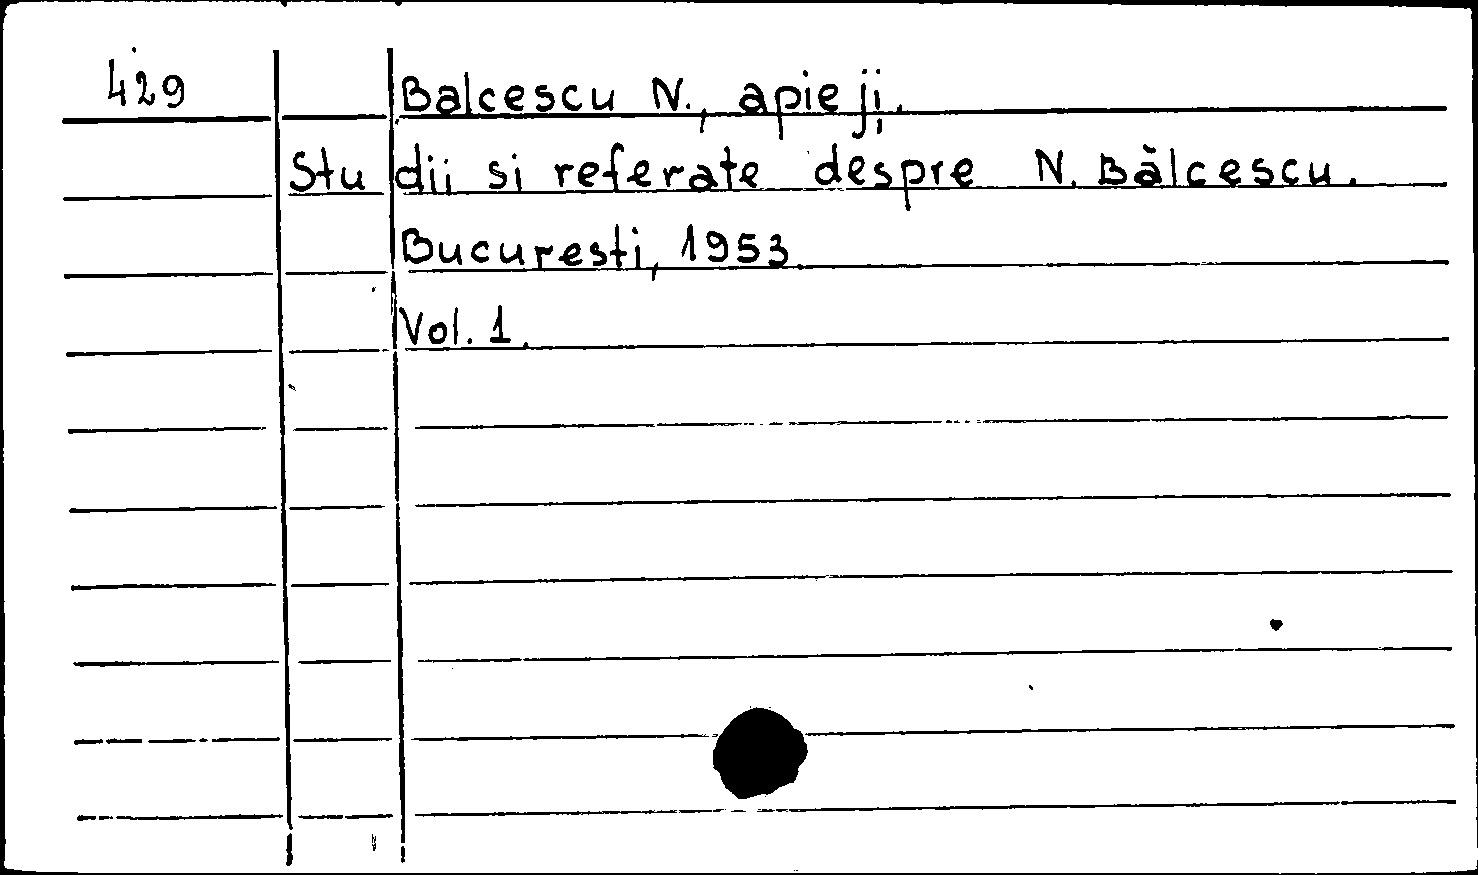 429 Balcescu N., apie jį.
Studii si referate despre N. Bălcescu.
Bucuresti, 1953.
Vol. 1.